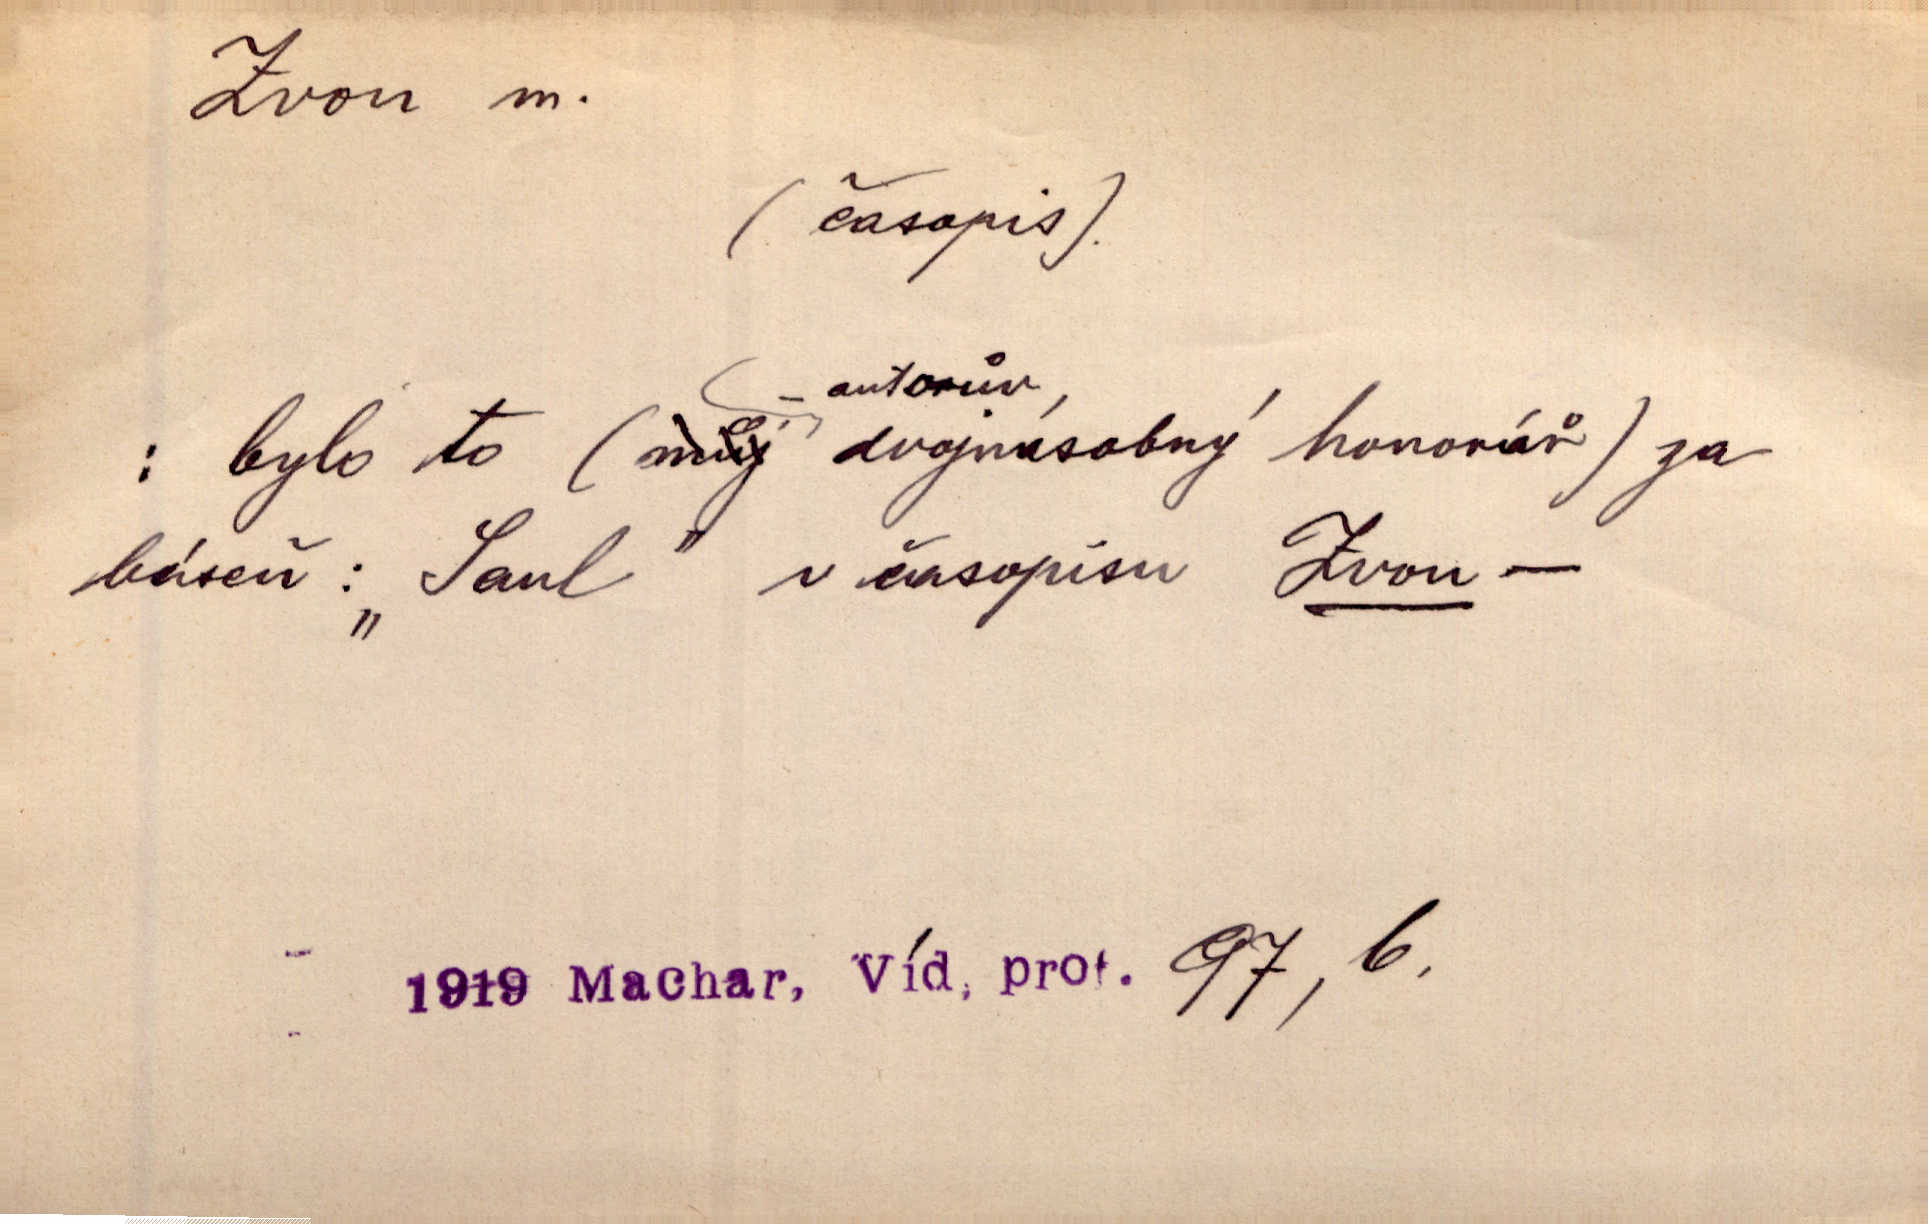 Zvon m.
(časopis).
autorův,
: bylo to (můj dvojnásobný honorář) za
báseň: „Saul" v časopisu Zvon —
1919 Machar, Víd, prot. 97, 6.